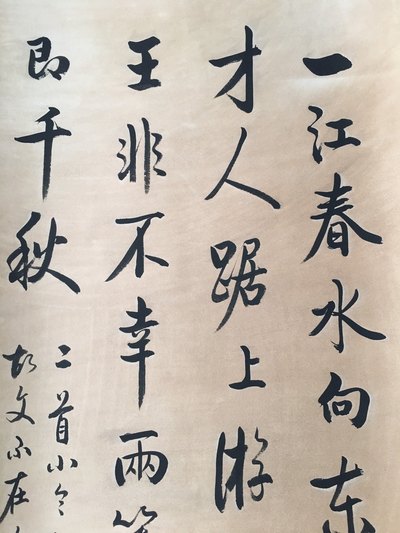 一江春水向东
才人踞上游
王非不幸兩
即千秋
二首小令
文不在